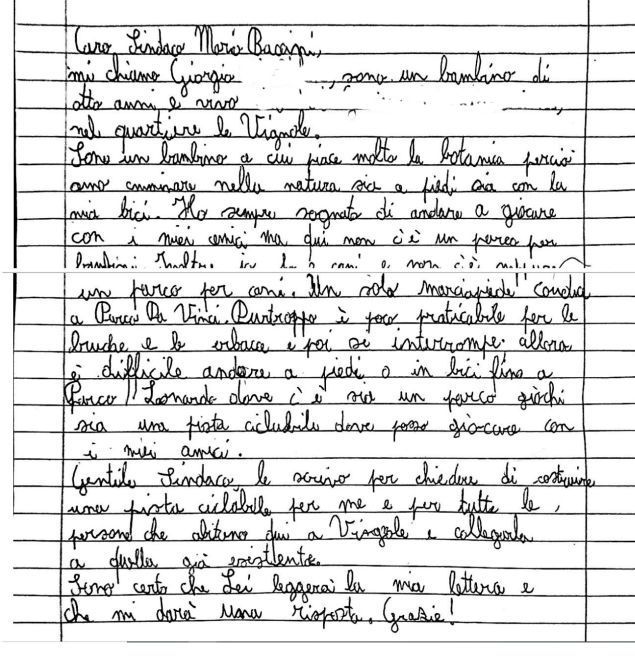 Caro Sindaco Mario Baccini,
mi chiamo Giorgio , sono un bambino di
otto anni e vivo ,
nel quartiere le Vignole.
Sono un bambino a cui piace molto la botanica perciò
amo camminare nella natura sia a piedi sia con la
mia bici. Ho sempre sognato di andare a giocare
con i miei amici ma qui non c'è un parco per
bambini. Inoltre io ho cani e non c'è
un parco per cani. Un solo marciapiede
a Parco Da Vinci. Purtroppo è poco praticabile per le
buche e le erbacce e poi si interrompe. allora
è difficile andare a piedi o in bici fino a
Parco Leonardo dove c'è sia un parco giochi
sia una pista ciclabile dove posso giocare con
i miei amici.
Gentile Sindaco, le scrivo per chiedere di costruire
una pista ciclabile per me e per tutte le
persone che abitano qui a Vignole e collegarla
a quella già esistente.
Sono certo che Lei leggerai la mia lettera e
che mi darà una risposta. Grazie!